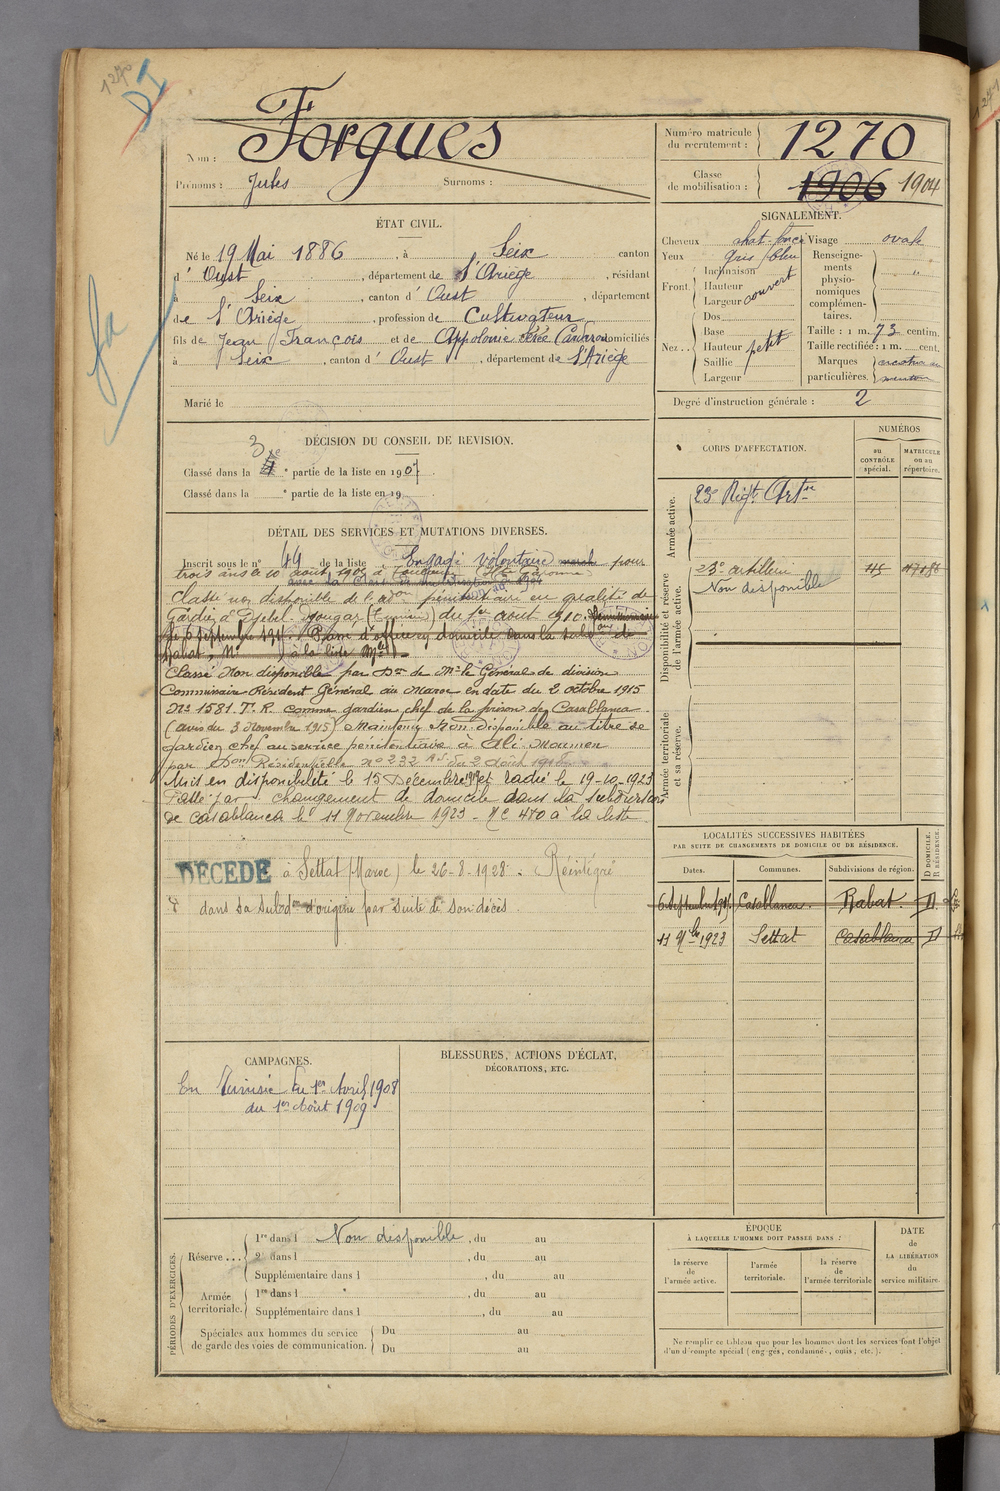 1270
DI
Nom : Forgues
Prénoms : Jules Surnoms :
Numéro matricule du recrutement : 1270
Classe de mobilisation : 1906 1904
ÉTAT CIVIL.
Né le 19 Mai 1886, à Seix canton
d'Oust, département de l'Ariège, résidant
à Seix, canton d'Oust, département
de l'Ariège, profession de Cultivateur
fils de Jean François et de Appolonie domiciliés
à Seix, canton d'Oust, département de l'Ariège
Marié le
SIGNALEMENT.
Cheveux chat. foncé Visage ovale
Yeux gris bleu
Front. Inclinaison
Hauteur
Largeur
couvert
Nez.. Dos
Base
Hauteur petit
Saillie
Largeur
Renseignements physionomiques complémentaires. "
Taille : 1 m. 73 centim.
Taille rectifiée : 1 m. cent.
Marques particulières. menton
Degré d'instruction générale : 2
DÉCISION DU CONSEIL DE REVISION.
3e
Classé dans la e partie de la liste en 1907.
Classé dans la e partie de la liste en 19
CORPS D'AFFECTATION.
NUMÉROS
au CONTRÔLE spécial.
MATRICULE ou au répertoire.
Armée active.
23e Régt. Artie
Disponibilité et réserve de l'armée active.
23e artillerie
Non disponible
Armée territoriale et sa réserve.
DÉTAIL DES SERVICES ET MUTATIONS DIVERSES.
Inscrit sous le n° 49 de la liste Engagé volontaire pour
trois ans le 10 août 1905 à
Classé non disponible de l'adon pénitentiaire en qualité de
Gardien à Djebel-Djougar (Tunisie) du 1er août 1910.
le 6 Septembre 1911. domicile dans la subd. de
Rabat, N° à la liste
Classé Non disponible par Don de Mr le Général de division
Commissaire Résident Général au Maroc en date du 2 octobre 1915
N° 1581. T. R. comme gardien chef de la prison de Casablanca
(avis du 3 Novembre 1915) Maintenu Non disponible au titre de
gardien chef au service pénitentiaire à Ali Moumen
par Don Résidentielle n° 232
Mis en disponibilité le 15 Décembre et radié le 19-10-1923
Passé par changement de domicile dans la subdivision
de Casablanca le 11 Novembre 1923 - N° 470 à la liste
DÉCÉDÉ à Settat (Maroc) le 26-8-1928. Réintégré
dans sa Subdon d'origine par suite de son décès.
LOCALITÉS SUCCESSIVES HABITÉES
PAR SUITE DE CHANGEMENTS DE DOMICILE OU DE RÉSIDENCE.
Dates. Communes. Subdivisions de région. D DOMICILE. R RÉSIDENCE.
6 Septembre 1911 Casablanca. Rabat. D
11 Nbre 1923 Settat Casablanca D
CAMPAGNES.
En Tunisie du 1er Avril 1908
au 1er Août 1909
BLESSURES, ACTIONS D'ÉCLAT,
DÉCORATIONS, ETC.
PÉRIODES D'EXERCICES.
Réserve ...
1re dans l Non disponible, du au
2e dans l , du au
Supplémentaire dans l , du au
Armée territoriale.
1re dans l , du au
Supplémentaire dans l , du au
Spéciales aux hommes du service de garde des voies de communication.
Du au
Du au
ÉPOQUE
À LAQUELLE L'HOMME DOIT PASSER DANS :
la réserve de l'armée active.
l'armée territoriale.
la réserve de l'armée territoriale
DATE de LA LIBÉRATION du service militaire.
Ne remplir ce tableau que pour les hommes dont les services font l'objet
d'un décompte spécial (engagés, condamnés, omis, etc.).